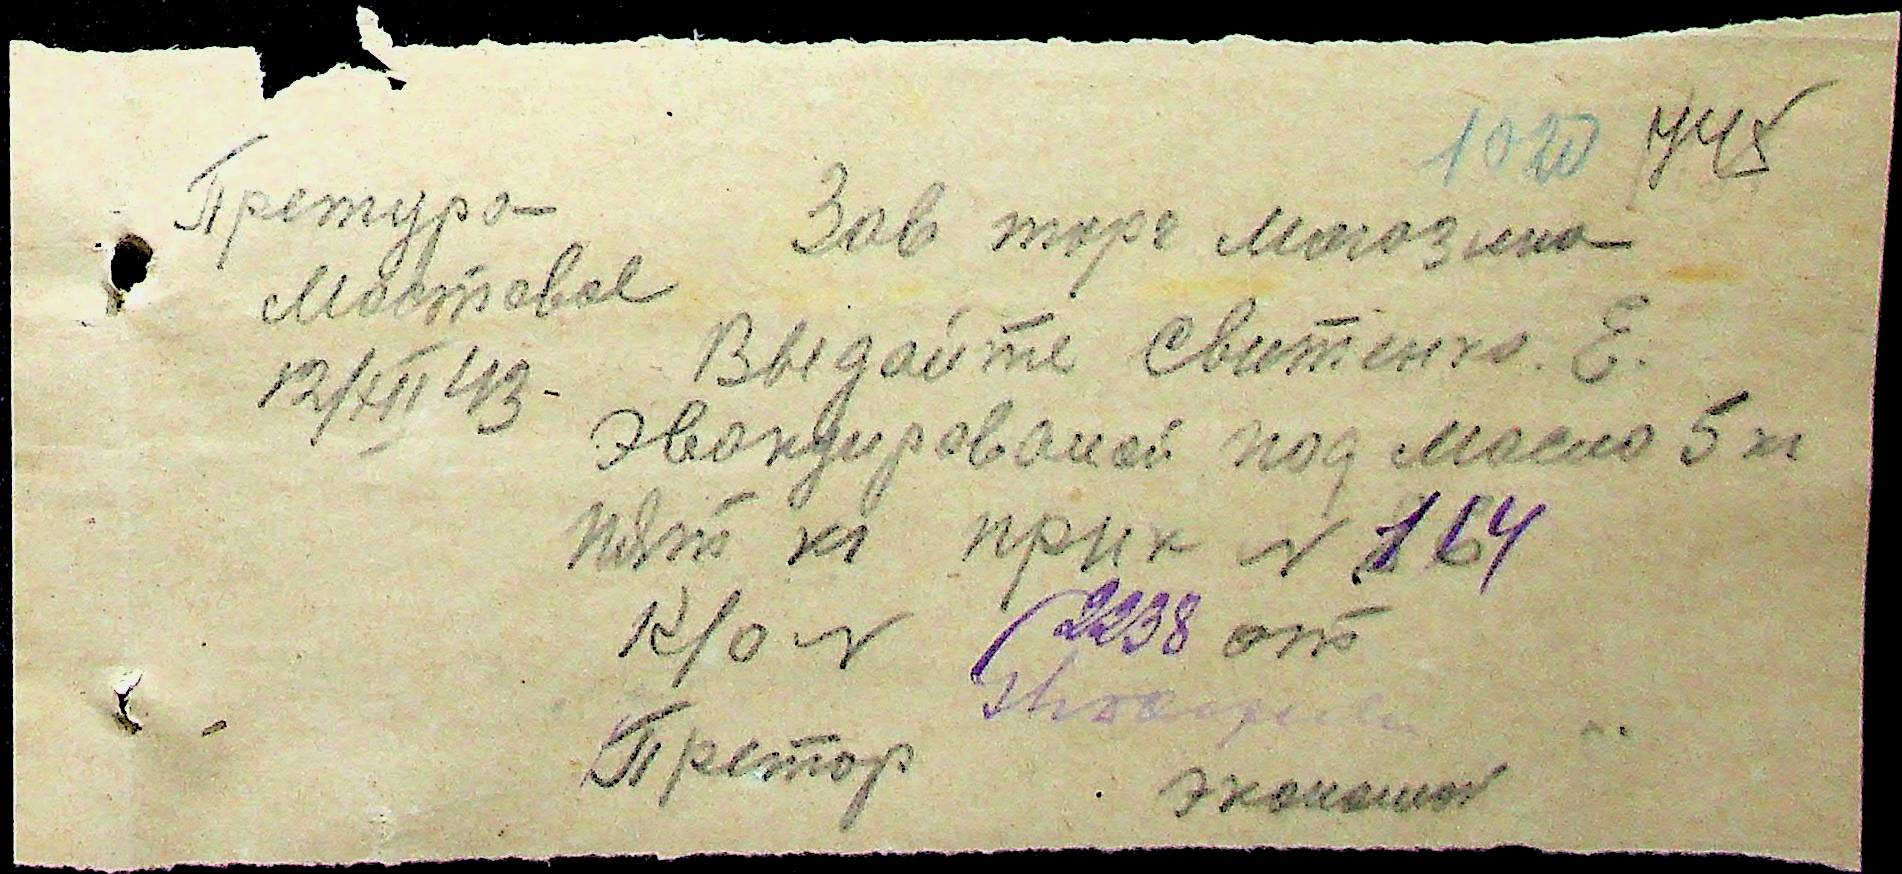 1020 445
Претура
Мостовое
12/XII 43-
Зав торг магазина
Выдайте Свитенко. Е.
эвакуированой под масло 5 кг
пят кг прик № 164
К/о № 2238 от
Претор
эконом